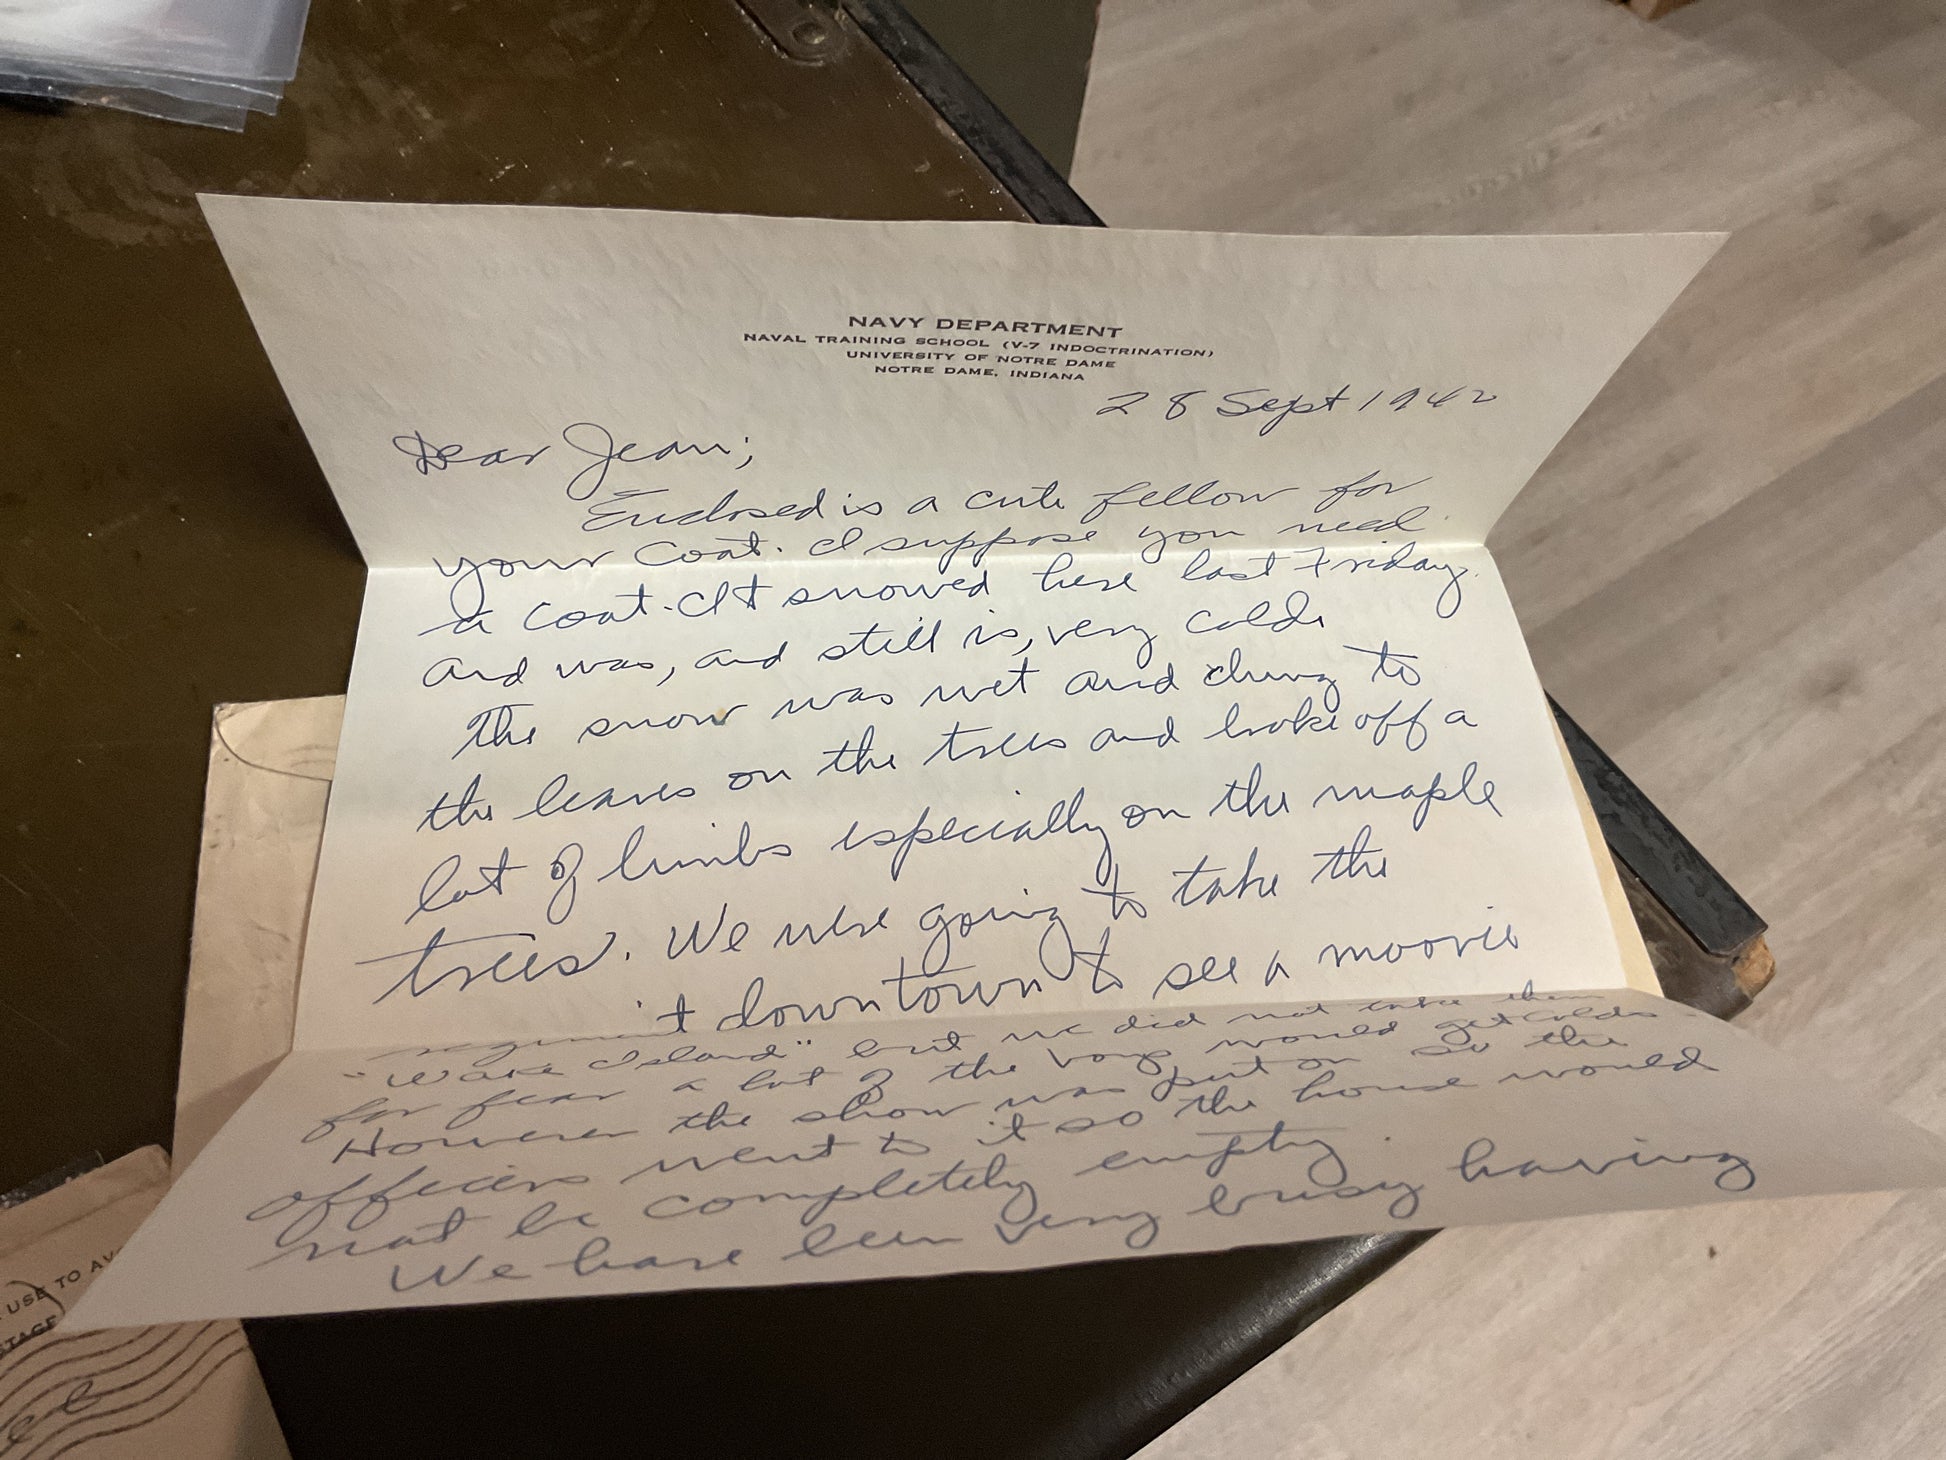 NAVY DEPARTMENT
NAVAL TRAINING SCHOOL (V-7 INDOCTRINATION)
UNIVERSITY OF NOTRE DAME
NOTRE DAME, INDIANA
28 Sept 1942
Dear Jean;
Enclosed is a cute fellow for
your coat. I suppose you need
a coat. It snowed here last Friday
and was, and still is, very cold.
The snow was wet and clung to
the leaves on the trees and broke off a
lot of limbs especially on the maple
trees. We were going to take the
regiment downtown to see a moovie
"Wake Island" but we did not take them
for fear a lot of the boys would get colds.
However the show was put on so the
officers went to it so the house would
not be completely empty.
We have been very busy having
USE TO AV
STAGE